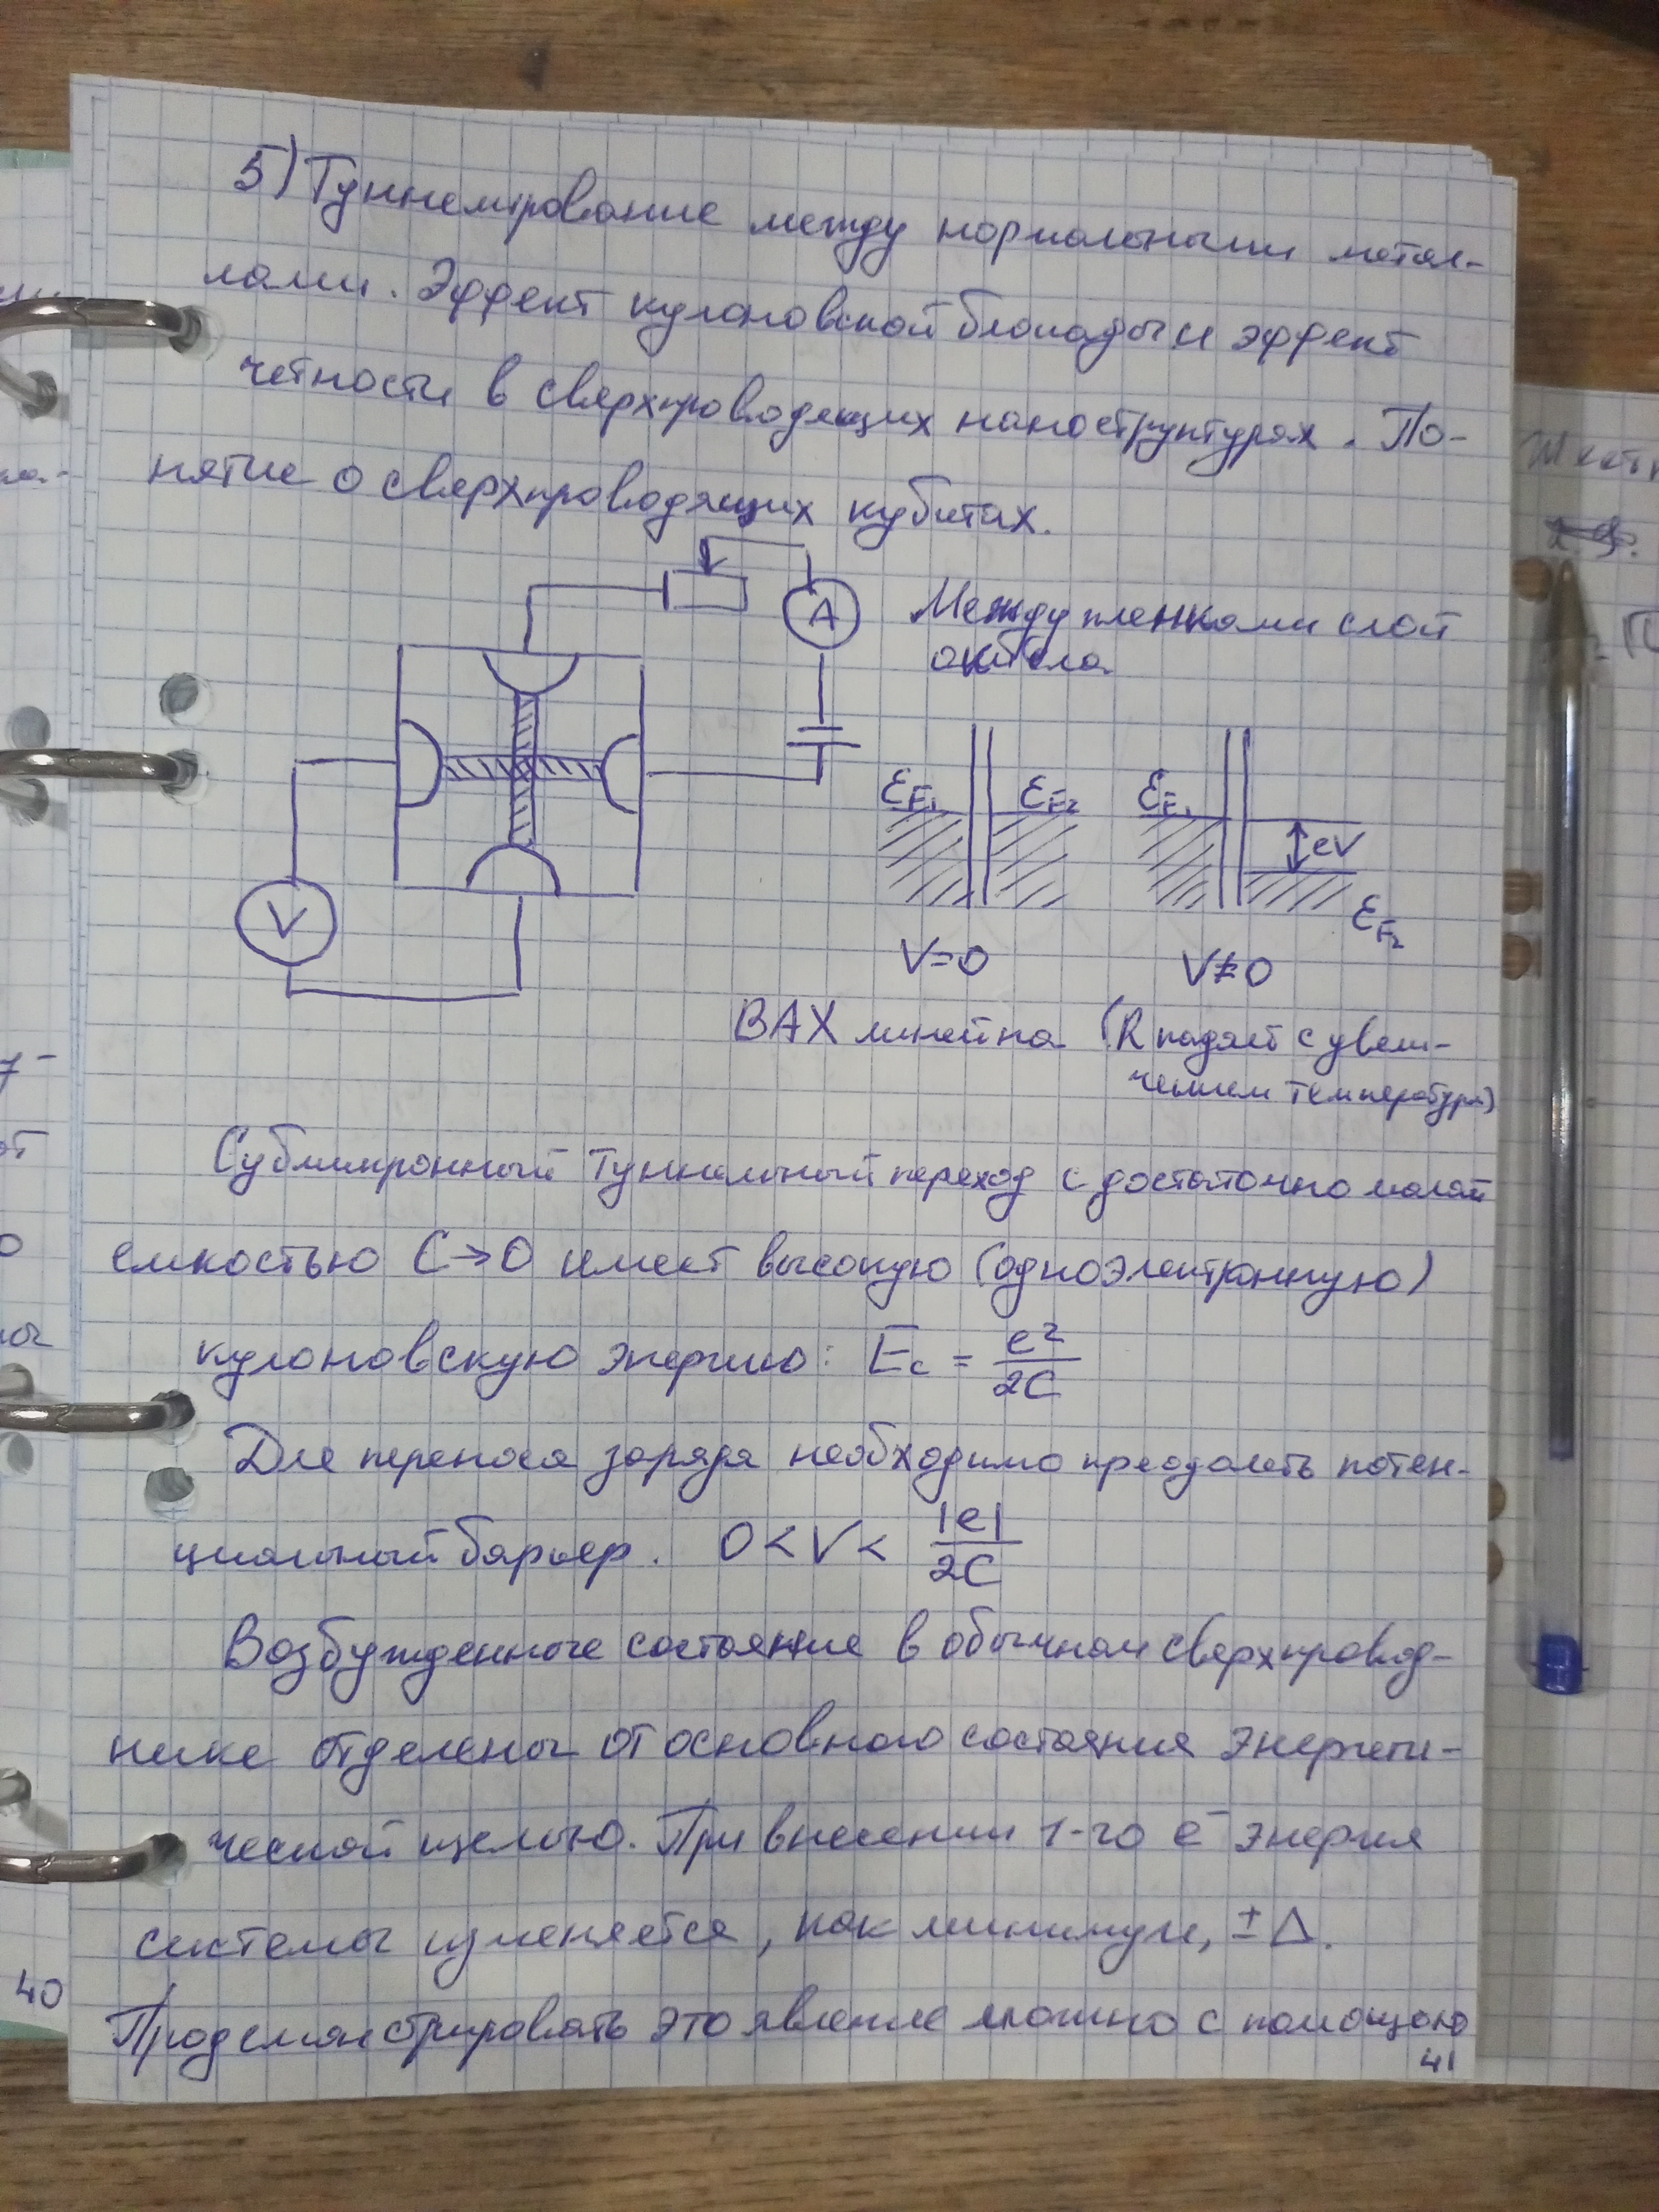 5) Туннелирование между нормальными метал-
лами. Эффект кулоновской блокады и эффект
четности в сверхпроводящих наноструктурах. По-
нятие о сверхпроводящих кубитах.
A
Между пленками слой
окисла
V
ε_F1 ε_F2
V=0
ε_F1 eV ε_F2
V≠0
ВАХ линейна (R падает с увели-
чением температуры)
Субмикронный туннельный переход с достаточно малой
емкостью C→0 имеет высокую (одноэлектронную)
кулоновскую энергию: E_c = e²/2C
Для переноса заряда необходимо преодолеть потен-
циальный барьер. 0 < V < |e|/2C
Возбужденные состояние в обычном сверхпровод-
нике отделены от основного состояния энергети-
ческой щелью. При внесении 1-го e⁻ энергия
системы изменяется, как минимум, ±Δ.
Продемонстрировать это явление можно с помощью
41
40